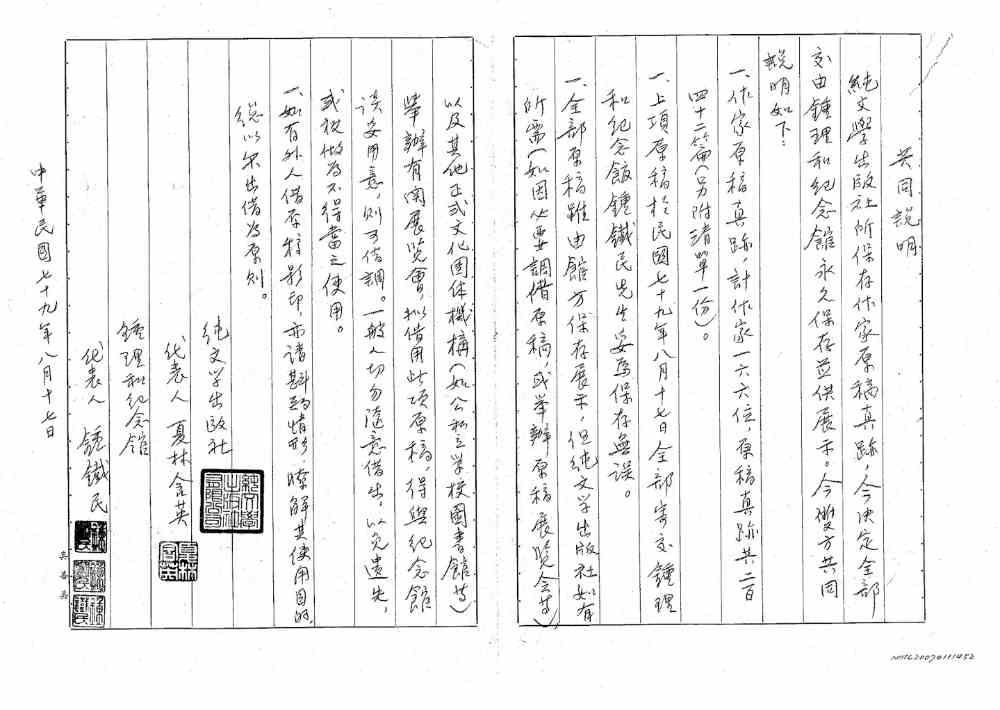 共同說明
純文學出版社所保存作家原稿真跡，今決定全部
交由鍾理和紀念館永久保存並供展示。今雙方共同
說明如下：
一、作家原稿真跡，計作家一六六位，原稿真跡共二百
四十二篇（另附清單一份）。
一、上項原稿於民國七十九年八月十七日全部寄交鍾理
和紀念館鍾鐵民先生妥為保存無誤。
一、全部原稿雖由館方保存展示，但純文学出版社如有
所需（如因必要調借原稿，或举辦原稿展覽会等）
以及其他正式文化团体機構（如公私立学校圖書館等）
举辦有関展覽會，擬借用此項原稿，得與纪念館
談妥用意，則可借調。一般人切勿隨意借出，以免遺失，
或被做為不得當之使用。
一、如有外人借原稿影印，亦請斟酌情形，瞭解其使用目的，
總以不出借為原則。
純文学出版社
代表人 夏林含英
鍾理和纪念館
代表人 鍾鐵民
中華民國七十九年八月十七日
純文學出版社有限公司
夏林含英
NMTL20070111452